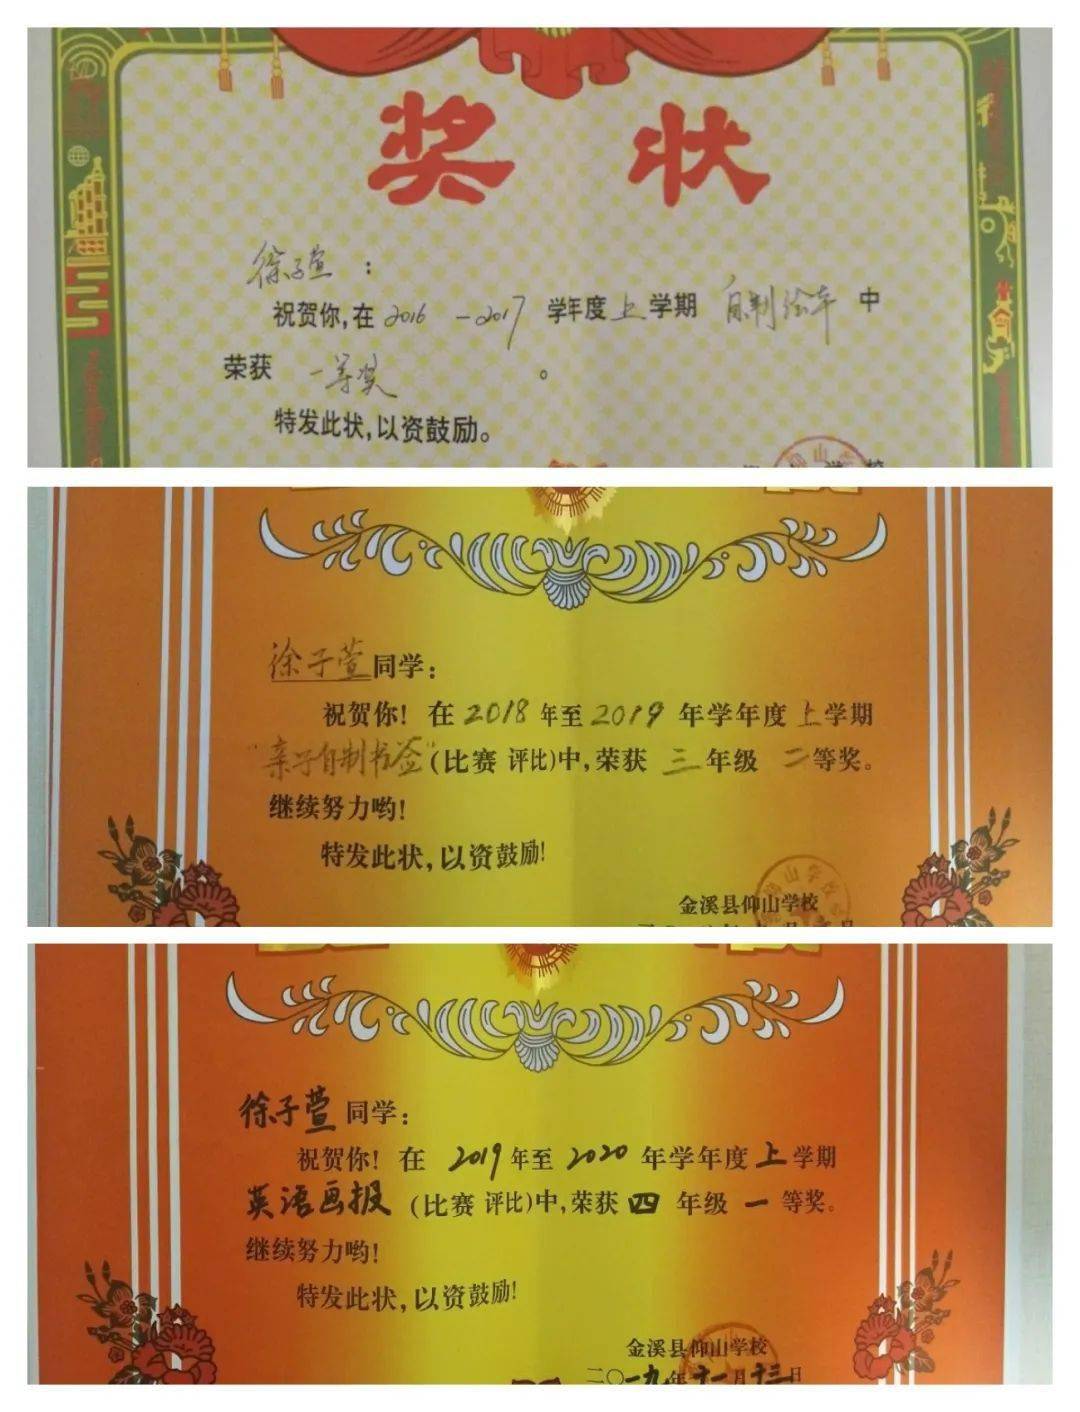 奖状
徐子萱：
祝贺你,在2016—2017学年度上学期 自制绘本 中
荣获 一等奖 。
特发此状,以资鼓励。
徐子萱同学：
祝贺你！在2018年至2019年学年度上学期
"亲子自制书签"(比赛 评比)中,荣获 三年级 二等奖。
继续努力哟！
特发此状,以资鼓励！
金溪县仰山学校
徐子萱同学：
祝贺你！在 2019年至2020年学年度上学期
英语画报(比赛 评比)中,荣获四年级 一等奖。
继续努力哟！
特发此状,以资鼓励！
金溪县仰山学校
二〇一九年十一月十三日